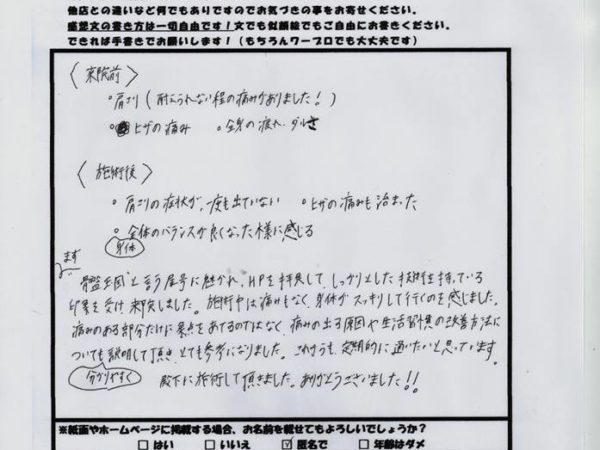 他店との違いなど何でもありですのでお気づきの事をお寄せください。
感想文の書き方は一切自由です！文でも似顔絵でもご自由にお書きください。
できれば手書きでお願いします！（もちろんワープロでも大丈夫です）
〈来院前〉
・肩こり（耐えられない程の痛みがありました！）
・ヒザの痛み ・全身の疲れ、ダルさ
〈施術後〉
・肩こりの症状が、一度も出ていない ・ヒザの痛みも治まった
・全体のバランスが良くなった様に感じる
身体
まず
と言う屋号に惹かれ、HPを拝見して、しっかりとした技術を持っている
印象を受け来院しました。施術中は痛みもなく、身体がスッキリして行くのを感じました。
痛みのある部分だけに焦点をあてるのではなく痛みの出る原因や生活習慣の改善方法に
ついても説明して頂きとても参考になりました。これからも、定期的に通いたいと思っています。
分かりやすく
殿下に施術して頂きました。ありがとうございました!!
※紙面やホームページに掲載する場合、お名前を載せてもよろしいでしょうか？
□ はい □ いいえ ☑ 匿名で □ 年齢はダメ